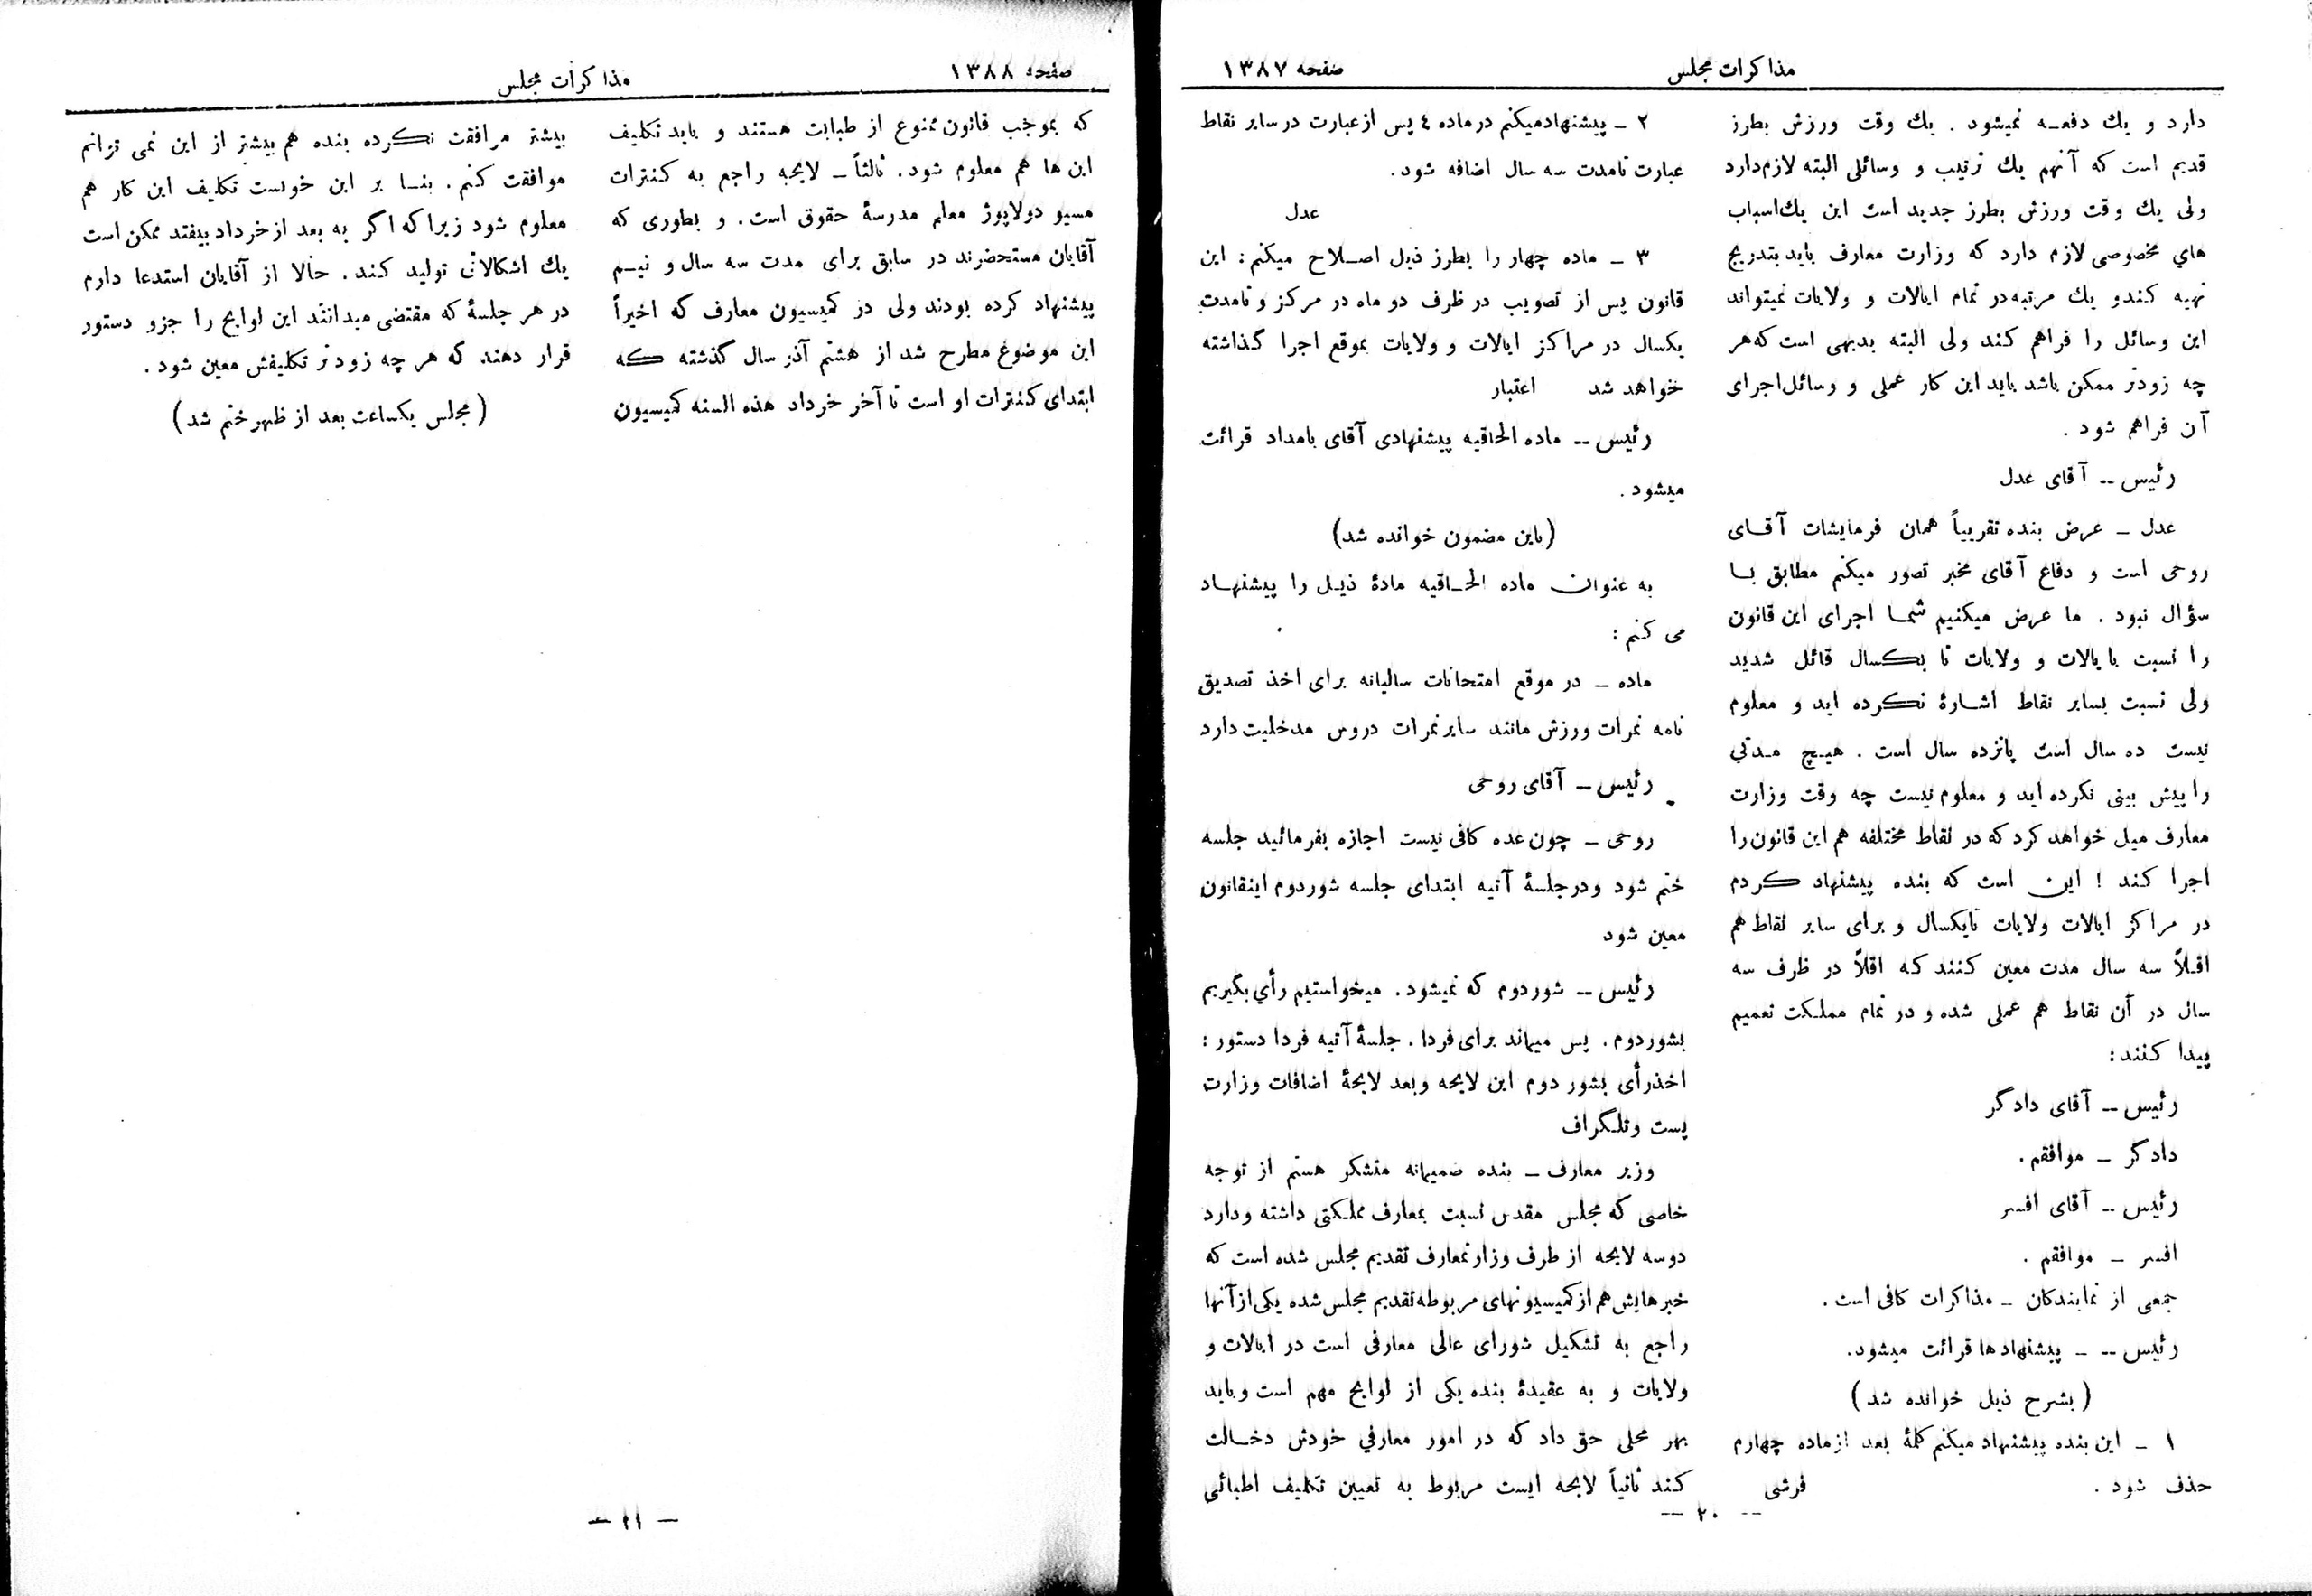 مذاکرات مجلس
صفحه ۱۳۸۷
دارد و یك دفعـه نمیشود . یك وقت ورزش بطرز
قدیم است که آنهم یك ترتیب و وسائلی البته لازم دارد
ولی یك وقت ورزش بطرز جدید است این یك اسباب
هاي مخصوصی لازم دارد که وزارت معارف باید بتدریج
تهیه کندو یك مرتبه در تمام ایالات و ولایات نمیتواند
این وسائل را فراهم کند ولی البته بدیهی است که هر
چه زودتر ممکن باشد باید این کار عملی و وسائل اجرای
آن فراهم شود .
رئیس -- آقای عدل
عدل - عرض بنده تقریباً همان فرمایشات آقـای
روحی است و دفاع آقای مخبر تصور میکنم مطابق بـا
سؤال نبود . ما عرض میکنیم شمـا اجرای این قانون
را نسبت بایالات و ولایات تا یکسال قائل شدید
ولی نسبت بسایر نقاط اشـارۀ نکرده اید و معلوم
نیست ده سال است پانزده سال است . هیـچ مـدتي
را پیش بینی نکرده اید و معلوم نیست چه وقت وزارت
معارف میل خواهد کرد که در نقاط مختلفه هم این قانون را
اجرا کند ! این است که بنده پیشنهاد کردم
در مراکز ایالات ولایات تایکسال و برای سایر نقاط هم
اقـلاً سه سال مدت معین کنند که اقلاً در ظرف سه
سال در آن نقاط هم عملی شده و در تمام مملـکت تعمیم
پیدا کنند:
رئیس -- آقای دادگر
دادگر - موافقم.
رئیس -- آقای افسر
افسر - موافقم .
جمعی از نمایندکان - مذاکرات کافی است .
رئیس -- - پیشنهاد ها قرائت میشود.
( بشرح ذیل خوانده شد )
۱ - این بنده پیشنهاد میکنم کلمۀ بعد از ماده چهارم
حذف شود . فرشی
۲ - پیشنهادمیکنم در ماده ٤ پس از عبارت در سایر نقاط
عبارت تامدت سه سال اضافه شود.
عدل
۳ - ماده چهار را بطرز ذیل اصـلاح میکنم : این
قانون پس از تصویب در ظرف دو ماه در مرکز و تامدت
یکسال در مراکز ایالات و ولایات بموقع اجرا گذاشته
خواهد شد اعتبار
رئیس -- ماده الحاقیه پیشنهادی آقای بامداد قرائت
میشود .
(باین مضمون خوانده شد)
به عنوان ماده الحـاقیه مادۀ ذیـل را پیشنهـاد
می کنم :
ماده - در موقع امتحانات سالیانه برای اخذ تصدیق
نامه نمرات ورزش مانند سایر نمرات دروس مدخلیت دارد
رئیس -- آقای روحی
روحی - چون عده کافی نیست اجازه بفرمائید جلسه
ختم شود و در جلسۀ آتیه ابتدای جلسه شور دوم اینقانون
معین شود
رئیس -- شور دوم که نمیشود . میخواستیم رأي بگیریم
بشور دوم . پس میماند برای فردا . جلسۀ آتیه فردا دستور :
اخذ رأی بشور دوم این لایحه و بعد لایحۀ اضافات وزارت
پست و تلـگراف
وزیر معارف - بنده صمیمانه متشکر هستم از توجه
خاصی که مجلس مقدس نسبت بمعارف مملـکتی داشته و دارد
دوسه لایحه از طرف وزارتمعارف تقدیم مجلس شده است که
خبرهایش هم از کمیسیونهای مربوطه تقدیم مجلس شده یکی از آنها
راجع به تشکیل شورای عالی معارفی است در ایالات و
ولایات و به عقیدۀ بنده یکی از لوایح مهم است و باید
بهر محلی حق داد که در امور معارفي خودش دخـالت
کند ثانیاً لایحه ایست مربوط به تعیین تکلیف اطبائی
-- ۲۰ --
صفحه ۱۳۸۸
مذاکرات مجلس
که بموجب قانون ممنوع از طبابت هستند و باید تکلیف
این ها هم معلوم شود . ثالثاً - لایحه راجع به کنترات
مسیو دولاپوژ معلم مدرسۀ حقوق است . و بطوری که
آقایان مستحضرند در سابق برای مدت سه سال و نیـم
پیشنهاد کرده بودند ولی در کمیسیون معارف که اخیراً
این موضوع مطرح شد از هشتم آذر سال گذشته که
ابتدای کنترات او است تا آخر خرداد هذه السنه کمیسیون
بیشتر مرافقت نکرده بنده هم بیشتر از این نمی توانم
موافقت کنم . بنـا بر این خوبست تکلیف این کار هم
معلوم شود زیرا که اگر به بعد از خرداد بیفتد ممکن است
یك اشکالاتی تولید کند . حالا از آقایان استدعا دارم
در هر جلسۀ که مقتضی میدانند این لوایح را جزو دستور
قرار دهند که هر چه زودتر تکلیفش معین شود .
( مجلس یکساعت بعد از ظهر ختم شد )
- ۲۱ -